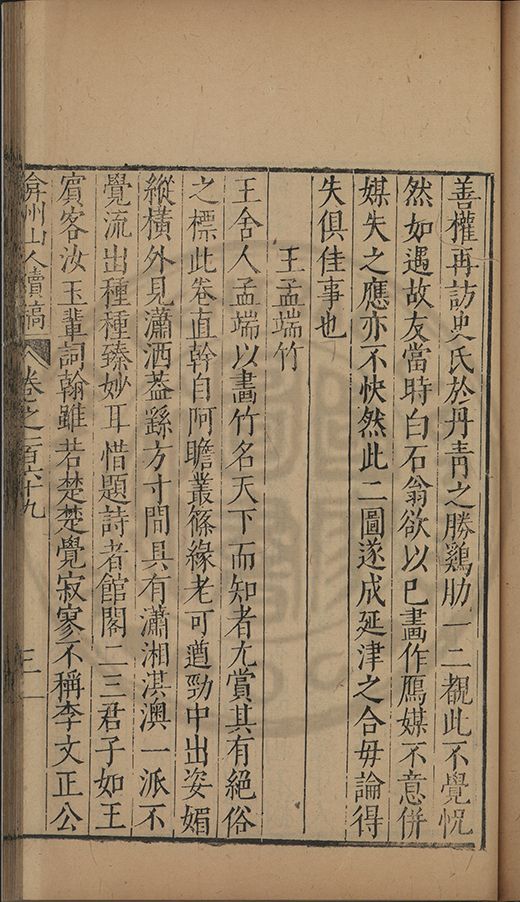 善權再訪史氏於丹青之勝鷄肋一二覩此不覺怳
然如遇故友當時白石翁欲以已畫作鴈媒不意併
媒失之應亦不怏然此二圖遂成延津之合毋論得
失俱佳事也
王孟端竹
王舍人孟端以畫竹名天下而知者尤賞其有絕俗
之標此卷直幹自阿瞻叢篠緣老可遒勁中出姿媚
縱橫外見瀟洒葢繇方寸間具有瀟湘淇澳一派不
覺流出種種臻妙耳惜題詩者館閣二三君子如王
賓客汝玉輩詞翰雖若楚楚覺寂寥不稱李文正公
弇州山人續稿 卷之一百六十九 三